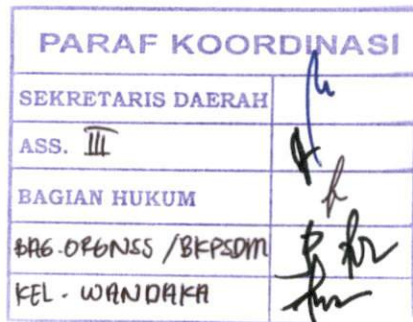 PARAF KOORDINASI
SEKRETARIS DAERAH
ASS. III
BAGIAN HUKUM
BAG. ORGNSS / BKPSDM
KEL. WANDAKA